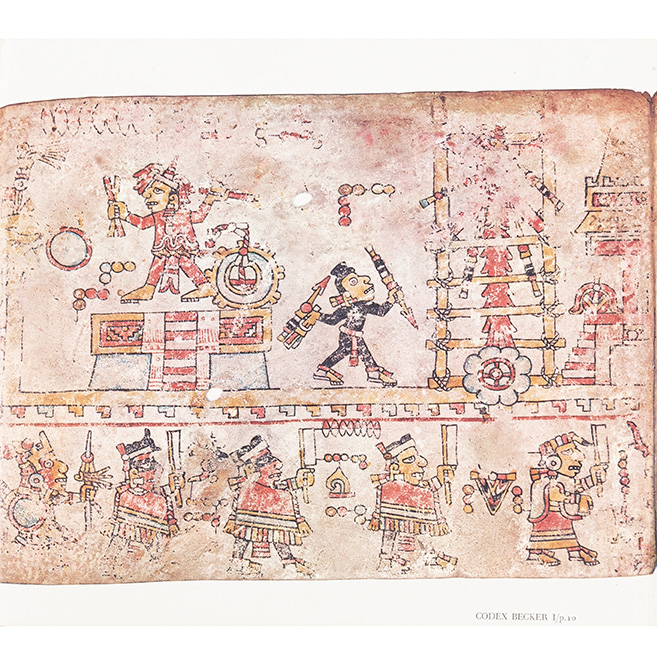 CODEX BECKER I/p.10